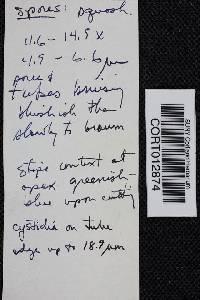 Spores:
11.6 - 14.9 x
4.9 - 6.6 µm
pores &
tubes bruising
bluish then
slowly to brown
stipe context at
apex greenish-
blue upon cutting
cystidia on tube
edge up to 18.9 µm
CORT012874